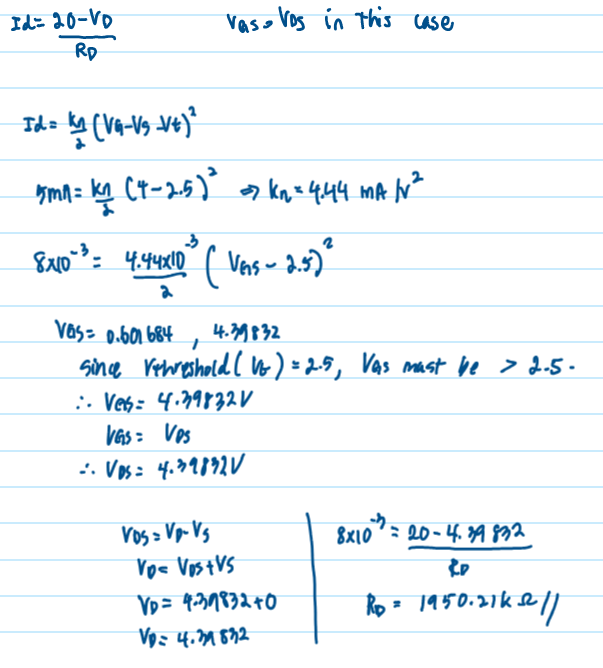 Id = 20-VD / RD     VGS = VDS in this case
Id = kn/2 (VG-VS-Vt)²
5mA = kn/2 (4-2.5)² ⇒ kn = 4.44 mA/V²
8x10⁻³ = 4.44x10⁻³/2 (VGS - 2.5)²
VGS = 0.601684 , 4.39832
Since Vthreshold (Vt) = 2.5, VGS must be > 2.5.
∴ VGS = 4.39832V
VGS = VDS
∴ VDS = 4.39832V
VDS = VD-VS
VD = VDS+VS
VD = 4.39832+0
VD = 4.39832
8x10⁻³ = 20-4.39832 / RD
RD = 1950.21kΩ //